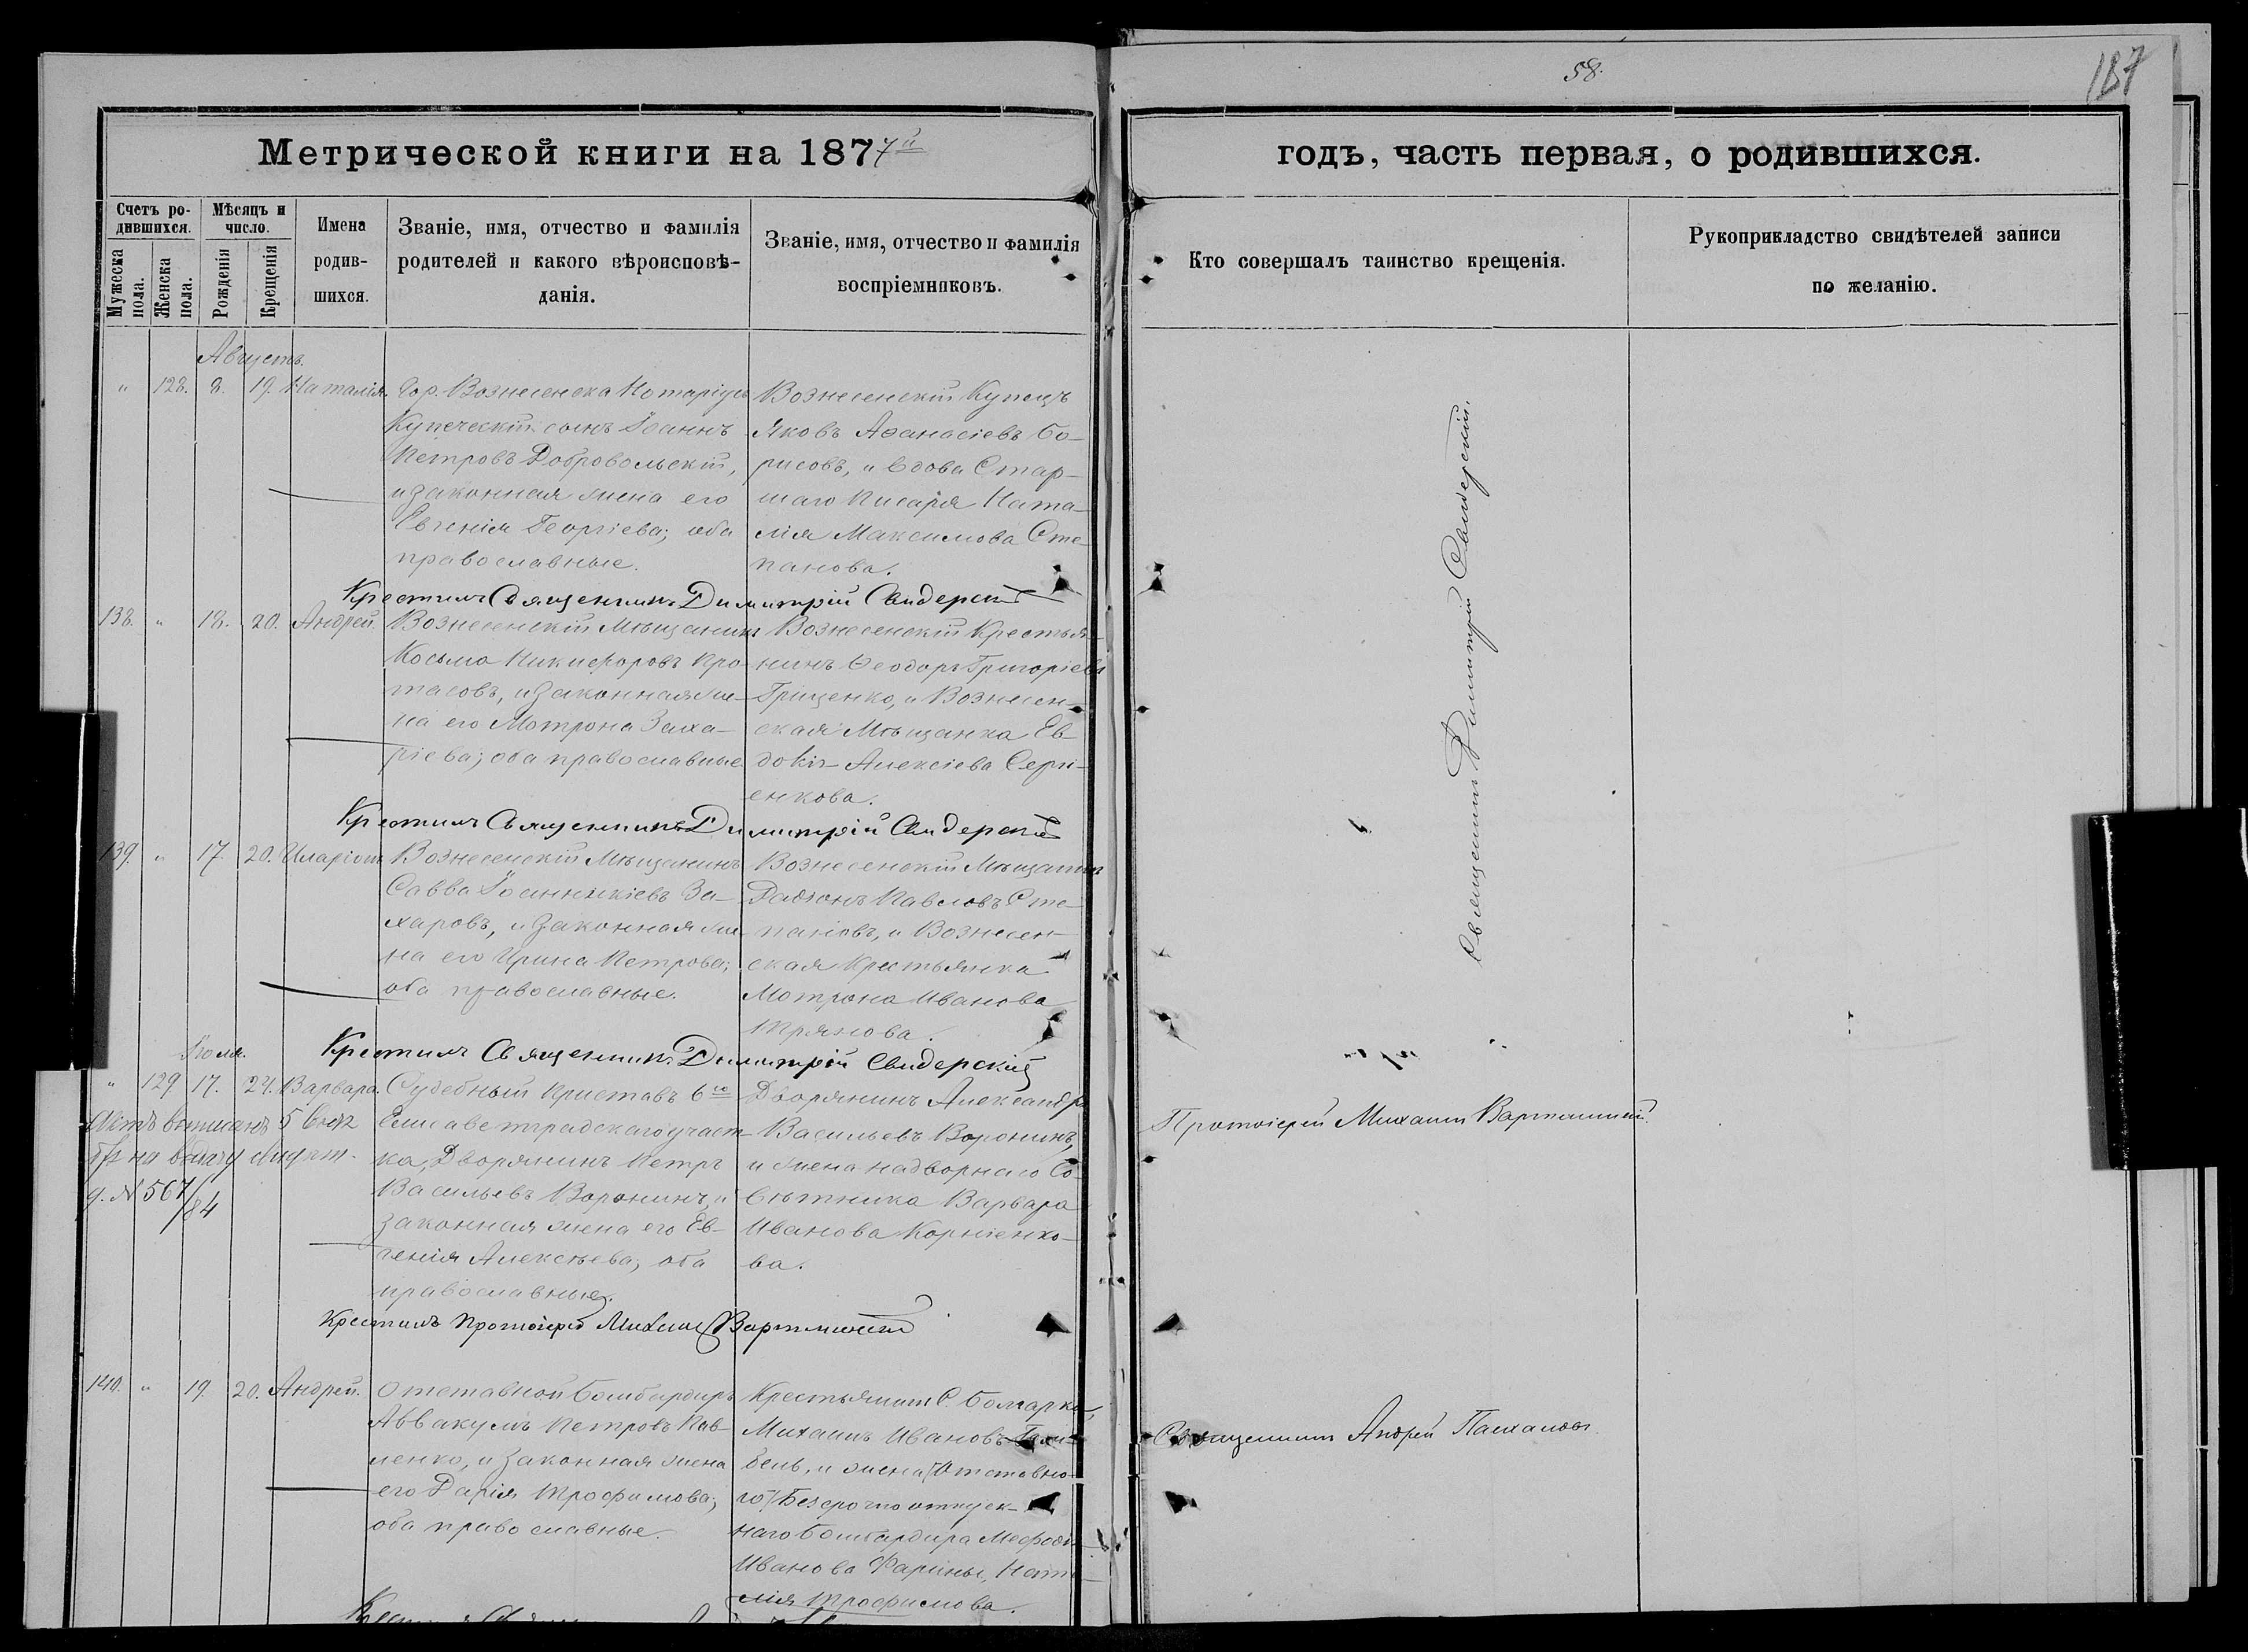 58.
187
Метрической книги на 1877й
годъ, часть первая, о родившихся.
Счетъ ро-
дившихся.
Мужеска пола.
Женска пола.
Мѣсяцъ и
число.
Рожденія
Крещенія
Имена
родив-
шихся.
Званіе, имя, отчество и фамилія
родителей и какого вѣроисповѣ-
данія.
Званіе, имя, отчество и фамилія
воспріемниковъ.
Кто совершалъ таинство крещенія.
Рукоприкладство свидѣтелей записи
по желанію.
Августъ.
" 128. 8. 19. Наталія.
Гор. Вознесенска Нотаріусъ
Купеческій сынъ Іоаннъ
Петровъ Добровольскій,
и законная жена его
Евгенія Георгіева; оба
православные.
Вознесенскій Купецъ
Яковъ Аѳанасіевъ Бо-
рисовъ, и вдова Стар-
шаго Писаря Ната-
лія Максимова Сте-
панова.
Крестилъ Священникъ Димитрій Свидерскій
Священникъ Димитрій Свидерскій.
138. " 18. 20. Андрей.
Вознесенскій Мѣщанинъ
Косьма Никифоровъ Про-
тасовъ, и законная же-
на его Мотрона Заха-
ріева; оба православные
Вознесенскій Крестья-
нинъ Ѳеодоръ Григоріевъ
Гриценко, и Вознесен-
ская Мѣщанка Ев-
докія Алексіева Серги-
енкова.
Крестилъ Священникъ Димитрій Свидерскій
139. " 17. 20. Иларіонъ
Вознесенскій Мѣщанинъ
Савва Іоанникіевъ За-
харовъ, и законная же-
на его Ирина Петрова;
оба православные.
Вознесенскій Мѣщанинъ
Радіонъ Павловъ Сте-
пановъ, и Вознесен-
ская Крестьянка
Мотрона Иванова
Крестилъ Священникъ Димитрій Свидерскій
Іюля.
" 129. 17. 24. Варвара.
Судебный Приставъ 6го
Елисаветградскаго участ-
ка, Дворянинъ Петръ
Васильевъ Воронинъ, и
законная жена его Ев-
генія Алексѣева; оба
православные.
Дворянинъ Александръ
Васильевъ Воронинъ,
и жена надворнаго Со-
вѣтника Варвара
Иванова Корніенко-
ва.
Актъ выписанъ 5
на
д. № 567/84
Протоіерей Михаилъ
Крестилъ Протоіерей Михаилъ
140. " 19. 20. Андрей.
Отставной Бомбардиръ
Аввакумъ Петровъ Пав-
ленко, и законная жена
его Дарія Трофимова;
оба православные.
Крестьянинъ С. Болгарки,
Михаилъ Ивановъ
бель, и жена (Отставно-
го) Безсрочно отпуск-
наго Бомбардира Меѳодія
Иванова Фарины, Ната-
лія Трофимова.
Священникъ Андрей